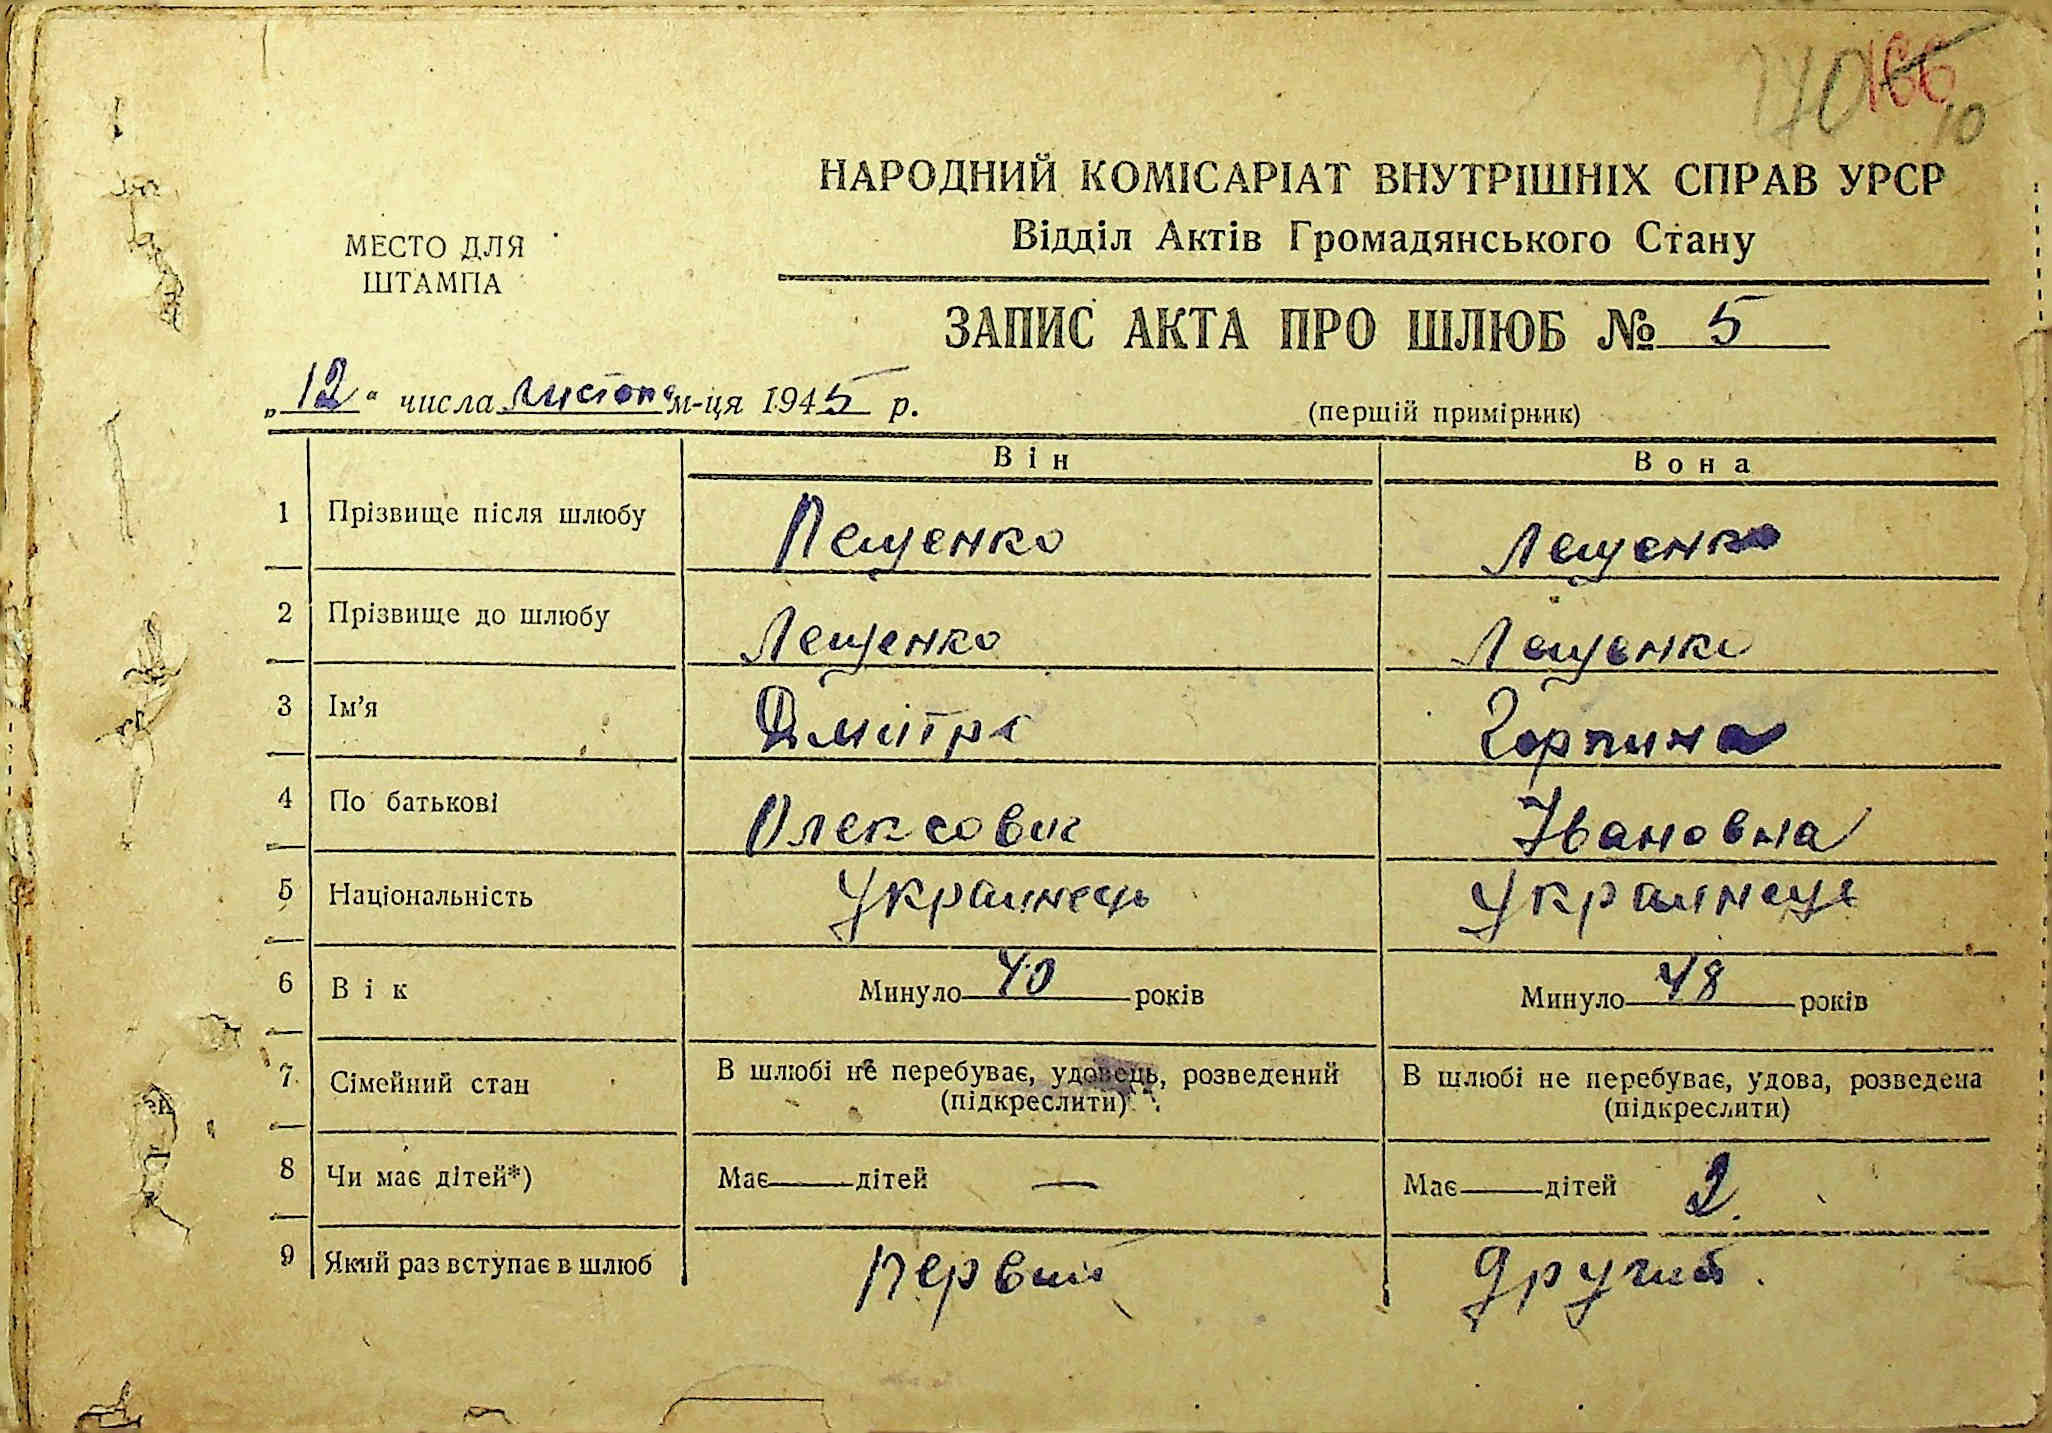 170 166
10
НАРОДНИЙ КОМІСАРІАТ ВНУТРІШНІХ СПРАВ УРСР
Відділ Актів Громадянського Стану
МЕСТО ДЛЯ
ШТАМПА
ЗАПИС АКТА ПРО ШЛЮБ № 5
„12“ числа листопа м-ця 1945 р.
(першій примірник)
Він Вона
1 Прізвище після шлюбу Лещенко Лещенко
2 Прізвище до шлюбу Лещенко Лещенко
3 Ім’я Дмітро Горпина
4 По батькові Олексович Івановна
5 Національність Украинець Украинець
6 Вік Минуло 40 років Минуло 48 років
7 Сімейний стан В шлюбі не перебуває, удовець, розведений В шлюбі не перебуває, удова, розведена
(підкреслити) (підкреслити)
8 Чи має дітей*) Має — дітей — Має — дітей 2
9 Який раз вступає в шлюб первий другий.